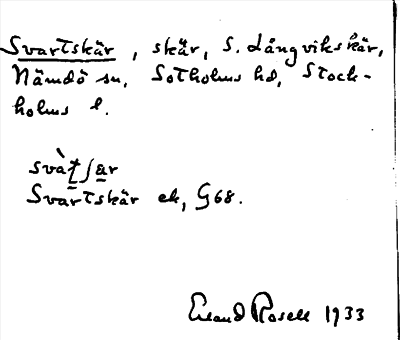 Svartskär, skär, S. Långvikskär,
Nämdö sn, Sotholms hd, Stock-
holms l.
Svartskär ek, G68.
Erland Rosell 1933